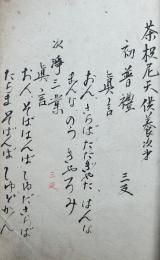 茶枳尼天供養次才
初普禮 三反
眞言
おんさらばたたぎやた はんな
まんなのうきやろみ
次浄三業 三反
眞言
おんそばはんばしゆださらば
たらまそばんばしゆどかん